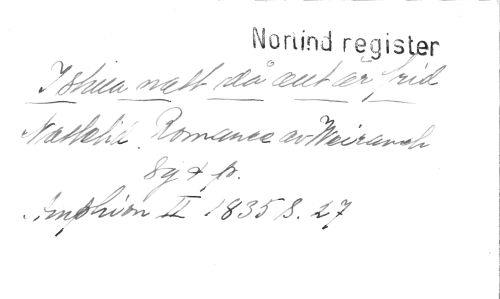 Norlind register
I stilla natt då allt är frid
Nattbild. Romance av Weirauch
Sg + p.
Amphion II 1835 s. 27